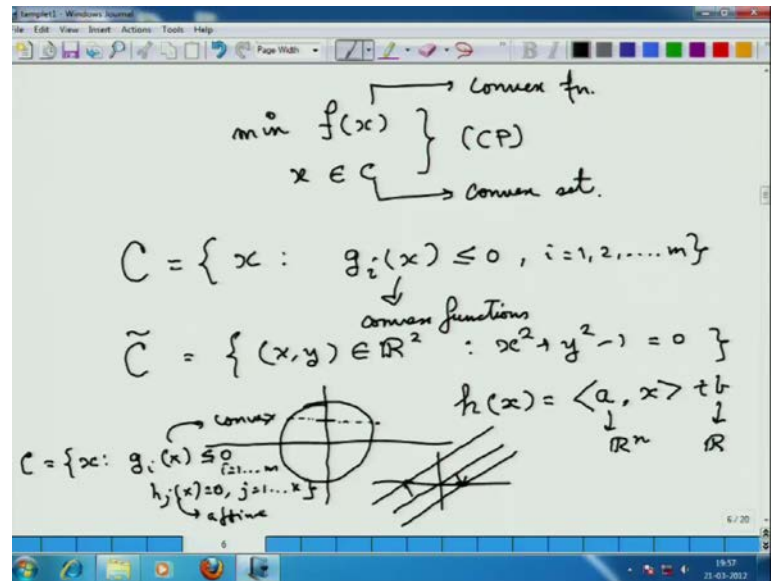 templet1 - Windows Journal
File Edit View Insert Actions Tools Help
Page Width
B I
→ convex fn.
min f(x) } (CP)
x ∈ C
→ convex set.
C = { x : g_i(x) ≤ 0 , i = 1, 2, .... m }
↓
convex functions
C̃ = { (x, y) ∈ ℝ² : x² + y² - 1 = 0 }
h(x) = <a, x> + b
↓ ↓
ℝⁿ ℝ
→ convex
C = { x : g_i(x) ≤ 0
i = 1 ... m
h_j(x) = 0, j = 1 ... k }
→ affine
6 / 20
6
19:57
21-03-2012